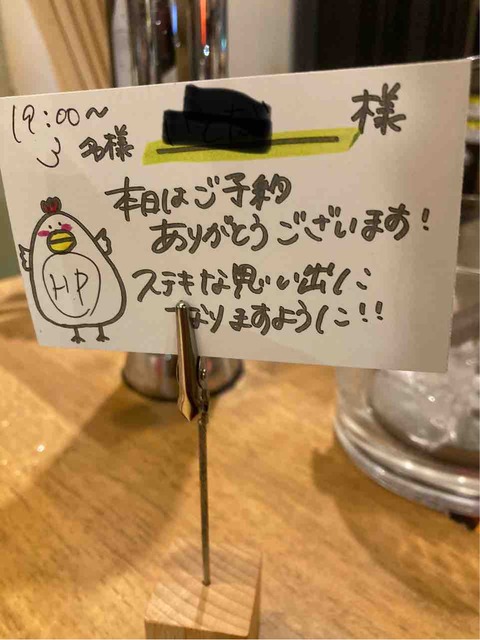 19:00～
3 名様 様
本日はご予約
ありがとうございます!
ステキな思い出に
なりますように!!
HP